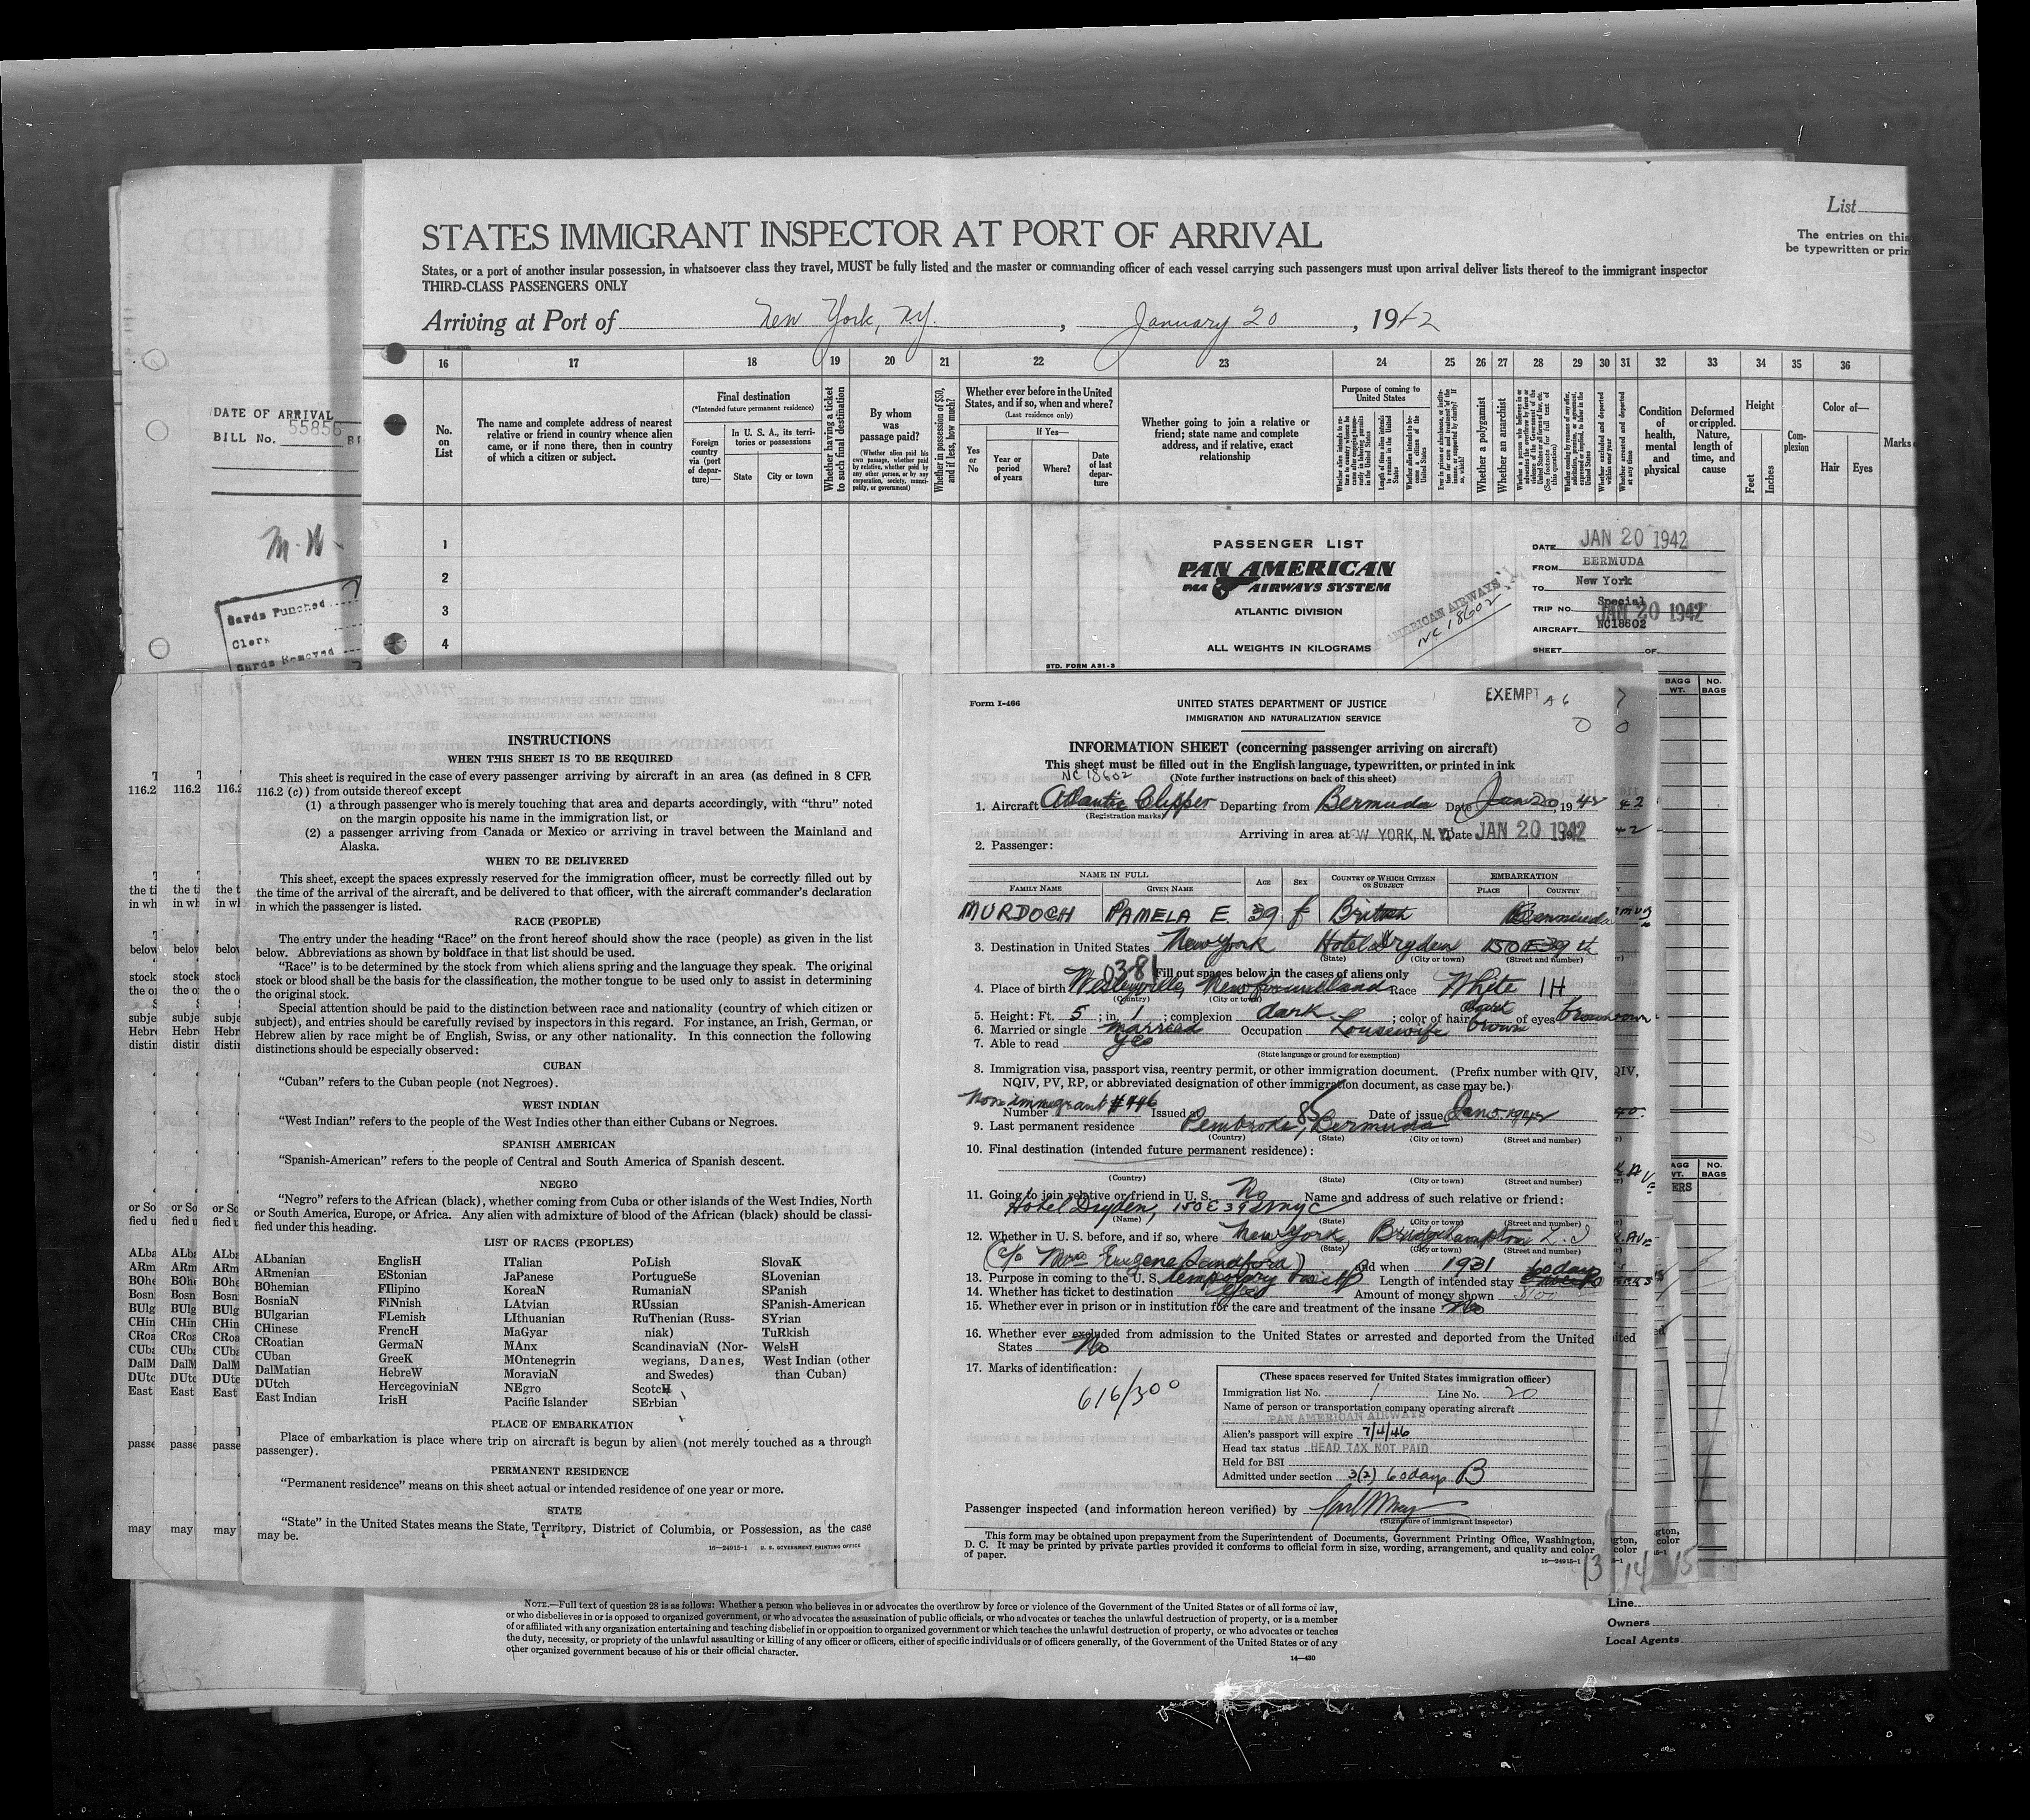 STATES IMMIGRANT INSPECTOR AT PORT OF ARRIVAL
States, or a port of another insular possession, in whatsoever class they travel, MUST be fully listed and the master or commanding officer of each vessel carrying such passengers must upon arrival deliver lists thereof to the immigrant inspector
THIRD-CLASS PASSENGERS ONLY
List
The entries on this
be typewritten or prin
Arriving at Port of New York, N.Y. , January 20 , 1942
16 17 18 19 20 21 22 23 24 25 26 27 28 29 30 31 32 33 34 35 36
No. on List
The name and complete address of nearest relative or friend in country whence alien came, or if none there, then in country of which a citizen or subject.
Final destination
(*Intended future permanent residence)
Foreign country via (port of departure)—
In U. S. A., its territories or possessions
State City or town
Whether having a ticket to such final destination
By whom was passage paid?
(Whether alien paid his own passage, whether paid by relative, whether paid by any other person, or by any corporation, society, municipality, or government)
Whether in possession of $50, and if less, how much?
Whether ever before in the United States, and if so, when and where?
(Last residence only)
Yes or No
If Yes—
Year or period of years
Where?
Date of last departure
Whether going to join a relative or friend; state name and complete address, and if relative, exact relationship
Purpose of coming to United States
Whether a polygamist
Whether an anarchist
Condition of health, mental and physical
Deformed or crippled. Nature, length of time, and cause
Height
Feet Inches
Complexion
Color of—
Hair Eyes
Marks
DATE OF ARRIVAL
BILL No. 55856
M.H.
Cards Punched
Clerk
Cards Removed
1
2
3
4
PASSENGER LIST
PAN AMERICAN
PAA AIRWAYS SYSTEM
ATLANTIC DIVISION
ALL WEIGHTS IN KILOGRAMS
STD. FORM A31-3
AMERICAN AIRWAYS
NC 18602
DATE JAN 20 1942
FROM BERMUDA
TO New York
TRIP NO. Special
JAN 20 1942
AIRCRAFT NC18602
SHEET OF
BAGG WT. NO. BAGS
INSTRUCTIONS
WHEN THIS SHEET IS TO BE REQUIRED
This sheet is required in the case of every passenger arriving by aircraft in an area (as defined in 8 CFR
116.2 (c)) from outside thereof except
(1) a through passenger who is merely touching that area and departs accordingly, with "thru" noted
on the margin opposite his name in the immigration list, or
(2) a passenger arriving from Canada or Mexico or arriving in travel between the Mainland and
Alaska.
WHEN TO BE DELIVERED
This sheet, except the spaces expressly reserved for the immigration officer, must be correctly filled out by
the time of the arrival of the aircraft, and be delivered to that officer, with the aircraft commander's declaration
in which the passenger is listed.
RACE (PEOPLE)
The entry under the heading "Race" on the front hereof should show the race (people) as given in the list
below. Abbreviations as shown by boldface in that list should be used.
"Race" is to be determined by the stock from which aliens spring and the language they speak. The original
stock or blood shall be the basis for the classification, the mother tongue to be used only to assist in determining
the original stock.
Special attention should be paid to the distinction between race and nationality (country of which citizen or
subject), and entries should be carefully revised by inspectors in this regard. For instance, an Irish, German, or
Hebrew alien by race might be of English, Swiss, or any other nationality. In this connection the following
distinctions should be especially observed:
CUBAN
"Cuban" refers to the Cuban people (not Negroes).
WEST INDIAN
"West Indian" refers to the people of the West Indies other than either Cubans or Negroes.
SPANISH AMERICAN
"Spanish-American" refers to the people of Central and South America of Spanish descent.
NEGRO
"Negro" refers to the African (black), whether coming from Cuba or other islands of the West Indies, North
or South America, Europe, or Africa. Any alien with admixture of blood of the African (black) should be classi-
fied under this heading.
LIST OF RACES (PEOPLES)
ALbanian EnglisH ITalian PoLish SlovaK
ARmenian EStonian JaPanese PortugueSe SLovenian
BOhemian FIlipino KoreaN RumaniaN SPanish
BosniaN FiNnish LAtvian RUssian SPanish-American
BUlgarian FLemish LIthuanian RuThenian (Russ- SYrian
CHinese FrencH MaGyar niak) TuRkish
CRoatian GermaN MAnx ScandinaviaN (Nor- WelsH
CUban GreeK MOntenegrin wegians, Danes, West Indian (other
DalMatian HebreW MoraviaN and Swedes) than Cuban)
DUtch HercegoviniaN NEgro ScotcH
East Indian IrisH Pacific Islander SErbian
PLACE OF EMBARKATION
Place of embarkation is place where trip on aircraft is begun by alien (not merely touched as a through
passenger).
PERMANENT RESIDENCE
"Permanent residence" means on this sheet actual or intended residence of one year or more.
STATE
"State" in the United States means the State, Territory, District of Columbia, or Possession, as the case
may be.
16—24915-1 U. S. GOVERNMENT PRINTING OFFICE
Form I-466
UNITED STATES DEPARTMENT OF JUSTICE
IMMIGRATION AND NATURALIZATION SERVICE
EXEMPT A 6
INFORMATION SHEET (concerning passenger arriving on aircraft)
This sheet must be filled out in the English language, typewritten, or printed in ink
NC 18602 (Note further instructions on back of this sheet)
1. Aircraft Atlantic Clipper Departing from Bermuda Date Jan 20 1942
(Registration marks)
Arriving in area at EW YORK, N.Y. Date JAN 20 1942
2. Passenger:
NAME IN FULL AGE SEX COUNTRY OF WHICH CITIZEN OR SUBJECT EMBARKATION
FAMILY NAME GIVEN NAME PLACE COUNTRY
MURDOCH PAMELA E. 39 f British Bermuda
3. Destination in United States New York Hotel Dryden 150 E 39 th
(State) (City or town) (Street and number)
381 Fill out spaces below in the cases of aliens only
4. Place of birth Wesleyville, Newfoundland Race White IH
(Country) (City or town)
5. Height: Ft. 5 ; in. 1 ; complexion dark ; color of hair dark brown of eyes brown
6. Married or single married Occupation Housewife
7. Able to read yes
(State language or ground for exemption)
8. Immigration visa, passport visa, reentry permit, or other immigration document. (Prefix number with QIV,
NQIV, PV, RP, or abbreviated designation of other immigration document, as case may be.)
Non immigrant # 446
Number Issued at 85 Date of issue Jan 5 1942
9. Last permanent residence Pembroke, Bermuda
(Country) (State) (City or town) (Street and number)
10. Final destination (intended future permanent residence):
(Country) (State) (City or town) (Street and number)
11. Going to join relative or friend in U. S. No Name and address of such relative or friend:
Hotel Dryden, 150 E 39 NYC
(Name) (State) (City or town) (Street and number)
12. Whether in U. S. before, and if so, where New York, Bridgehampton L. I
(State) (City or town) (Street and number)
(c/o Mrs Eugene Sandford) and when 1931
13. Purpose in coming to the U. S. temporary visit Length of intended stay 60 days
14. Whether has ticket to destination yes Amount of money shown $100
15. Whether ever in prison or in institution for the care and treatment of the insane No
16. Whether ever excluded from admission to the United States or arrested and deported from the United
States No
17. Marks of identification:
616/300
(These spaces reserved for United States immigration officer)
Immigration list No. 1 Line No. 20
Name of person or transportation company operating aircraft
PAN AMERICAN AIRWAYS
Alien's passport will expire 7/4/46
Head tax status HEAD TAX NOT PAID
Held for BSI
Admitted under section 3(2) 60 days B
Passenger inspected (and information hereon verified) by
(Signature of immigrant inspector)
This form may be obtained upon prepayment from the Superintendent of Documents, Government Printing Office, Washington,
D. C. It may be printed by private parties provided it conforms to official form in size, wording, arrangement, and quality and color
of paper.
16—24915-1
13 14 15
NOTE.—Full text of question 28 is as follows: Whether a person who believes in or advocates the overthrow by force or violence of the Government of the United States or of all forms of law,
or who disbelieves in or is opposed to organized government, or who advocates the assassination of public officials, or who advocates or teaches the unlawful destruction of property, or is a member
of or affiliated with any organization entertaining and teaching disbelief in or opposition to organized government or which teaches the unlawful destruction of property, or who advocates or teaches
the duty, necessity, or propriety of the unlawful assaulting or killing of any officer or officers, either of specific individuals or of officers generally, of the Government of the United States or of any
other organized government because of his or their official character.
14—430
Line
Owners
Local Agents